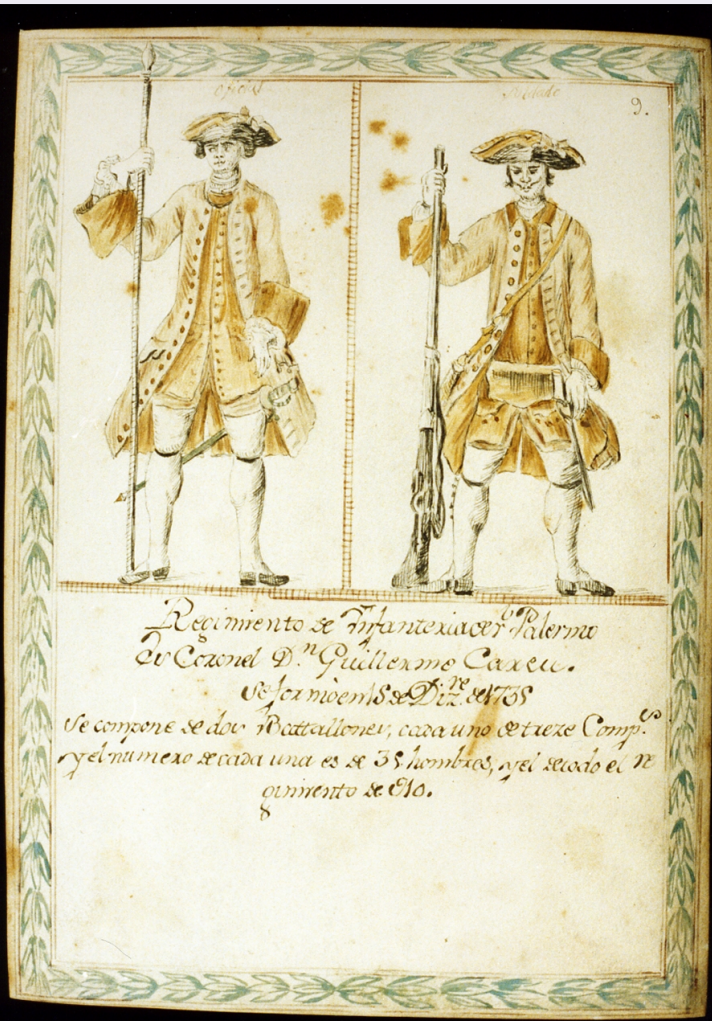 Oficial
Soldado
9.
Regimiento de Infanteria de Palermo
Su Coronel D.n Guillermo Careu.
Se formò en 15 de Diz.re de 1735
Se compone de dos Battallones, cada uno de treze Comp.s
y el numero de cada una es de 35 hombres, y el de todo el re
gimiento de 910.